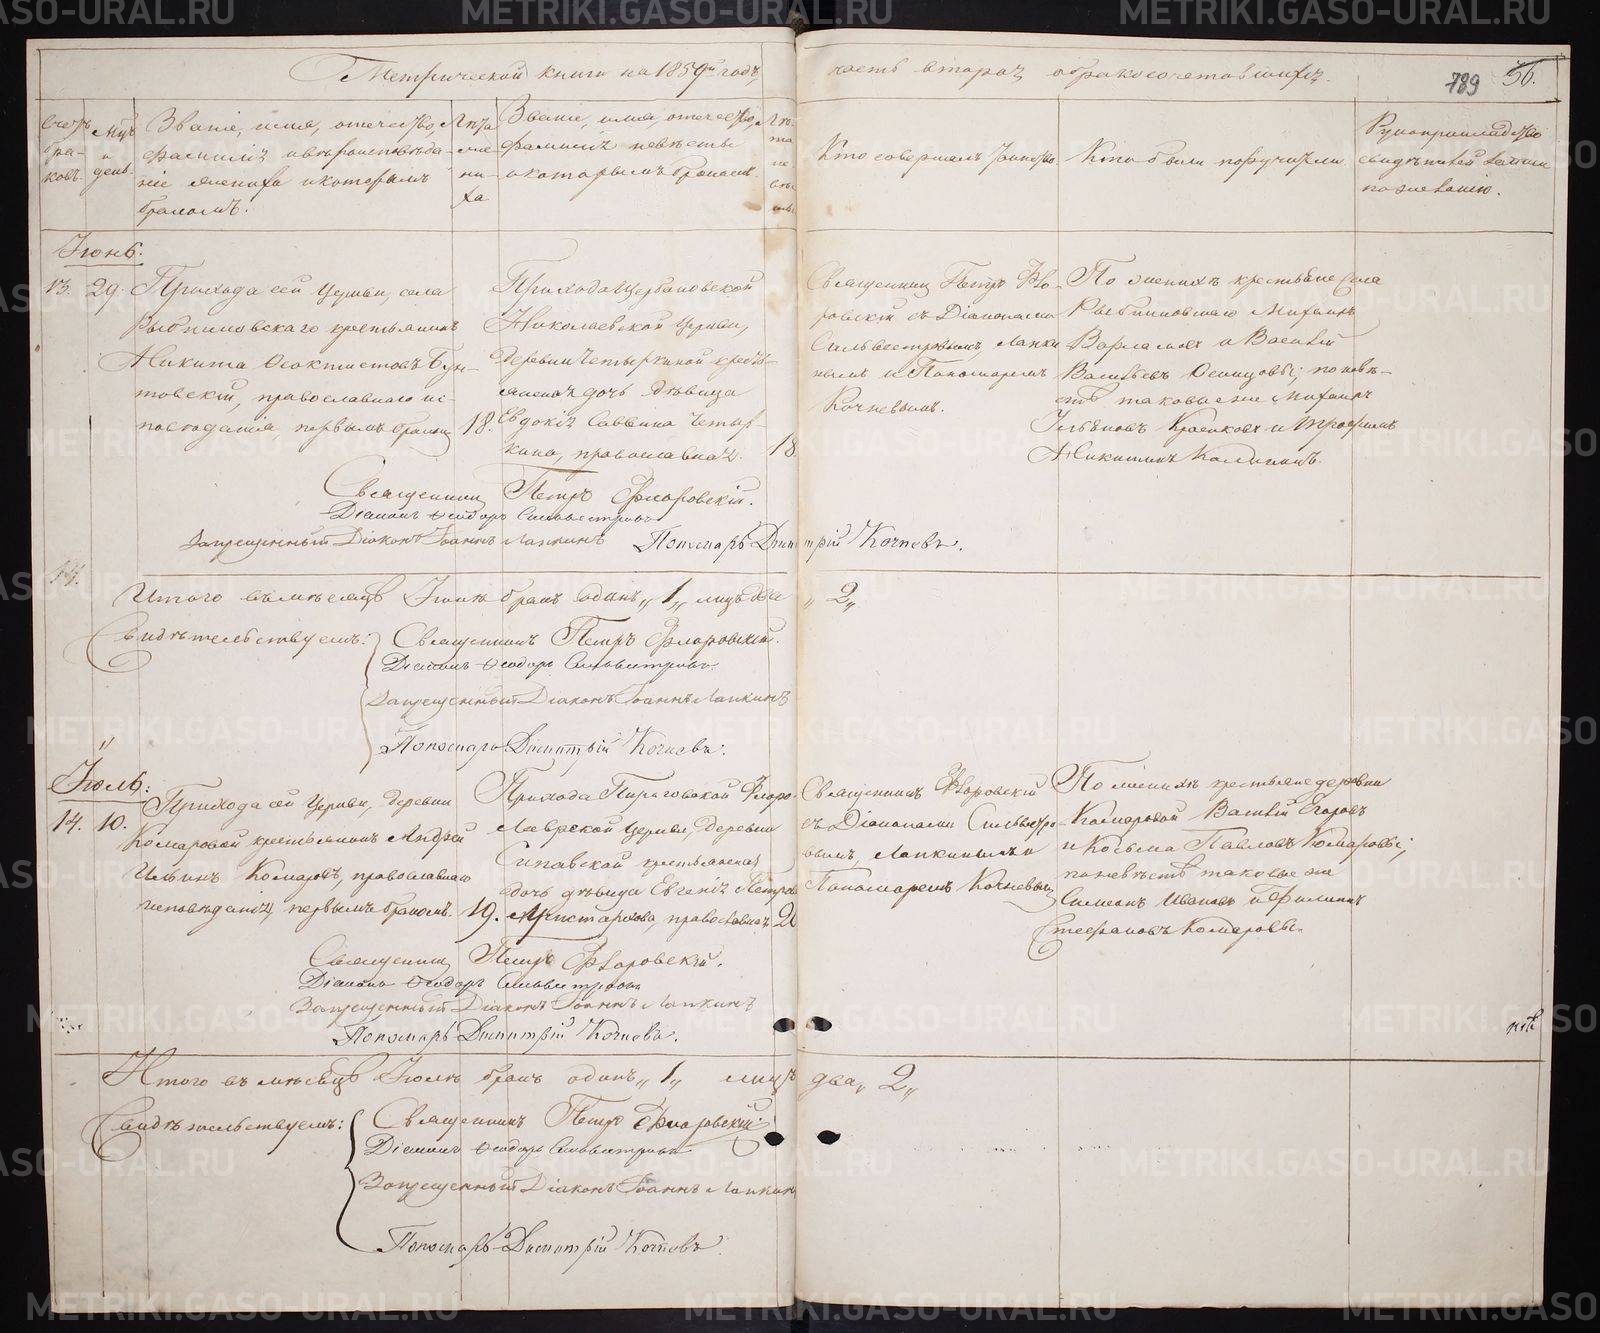 Метрической книги на 1859й годъ,
часть вторая о бракосочетавшихся.
789 56.
Счетъ браковъ.
Мѣсяцъ и день.
Званіе, имя, отечество,
фамилія и вѣроисповѣда-
ніе жениха и которымъ
бракомъ.
Лѣта жениха
Званіе, имя, отечество,
фамилія невѣсты
и которымъ бракомъ.
Лѣта невѣсты
Кто совершалъ таинство
Кто были поручители
Рукоприкладство
свидѣтелей записи
по желанію.
Іюнь.
13. 29.
Прихода сей Церкви, села
Рыбниковскаго крестьянинъ
Никита Ѳеоктистовъ Бун-
товскій, православнаго ис-
повѣданія, первымъ бракомъ
18.
Прихода Щербаковской
Николаевской Церкви,
деревни Четыркиной кресть-
янская дочь дѣвица
Евдокія Саввина Четыр-
кина, православная.
18
Священникъ Петръ Фло-
ровскій съ Діаконами
Сильвестровымъ, Лапки-
нымъ и Пономаремъ
Кочневымъ.
По женихѣ крестьяне села
Рыбниковскаго Михаилъ
Варламовъ и Василій
Васильевъ Осинцовы; по невѣ-
стѣ таковые же Михаилъ
Ильиновъ Красиковъ и Трофимъ
Никитинъ Калининъ.
Священникъ Петръ Флоровскій.
Діаконъ Ѳеодоръ Сильвестровъ
Запрещенный Діаконъ Іоаннъ Лапкинъ Пономарь Димитрій Кочневъ.
Итого въ мѣсяцѣ Іюнѣ бракъ одинъ „1„ лицъ два „2„
Свидѣтельствуемъ: Священникъ Петръ Флоровскій.
Діаконъ Ѳеодоръ Сильвестровъ.
Запрещенный Діаконъ Іоаннъ Лапкинъ
Пономарь Димитрій Кочневъ.
Іюль:
14. 10.
Прихода сей Церкви, деревни
Комаровой крестьянинъ Андрей
Ильинъ Комаровъ, православнаго
исповѣданія, первымъ бракомъ.
19.
Прихода Пироговской Флоро-
Лаврской Церкви, деревни
Сипавской крестьянская
дочь дѣвица Евгенія Петрова
Аристархова, православная
20
Священникъ Флоровскій
съ Діаконами Сильвестро-
вымъ, Лапкинымъ и
Пономаремъ Кочневымъ
По женихѣ крестьяне деревни
Комаровой Василій Егоровъ
и Козьма Павловъ Комаровы;
по невѣстѣ таковые же
Симеонъ Ивановъ и Филиппъ
Стефановъ Комаровы.
Священникъ Петръ Флоровскій.
Діаконъ Ѳеодоръ Сильвестровъ
Запрещенный Діаконъ Іоаннъ Лапкинъ
Пономарь Димитрій Кочневъ.
Итого въ мѣсяцѣ Іюлѣ бракъ одинъ „1„ лицъ два „2„
Свидѣтельствуемъ: Священникъ Петръ Флоровскій
Діаконъ Ѳеодоръ Сильвестровъ
Запрещенный Діаконъ Іоаннъ Лапкинъ
Пономарь Димитрій Кочневъ.
METRIKI.GASO-URAL.RU